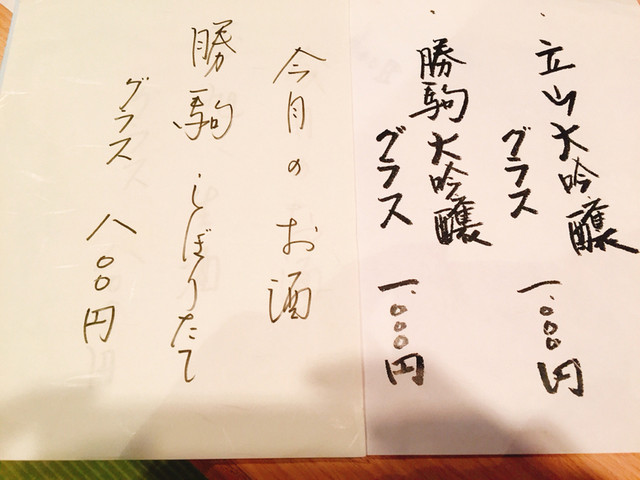 ・立山大吟醸
グラス
一、〇〇〇円
・勝駒大吟醸
グラス
一、〇〇〇円
今月のお酒
勝駒 しぼりたて
グラス 八〇〇円